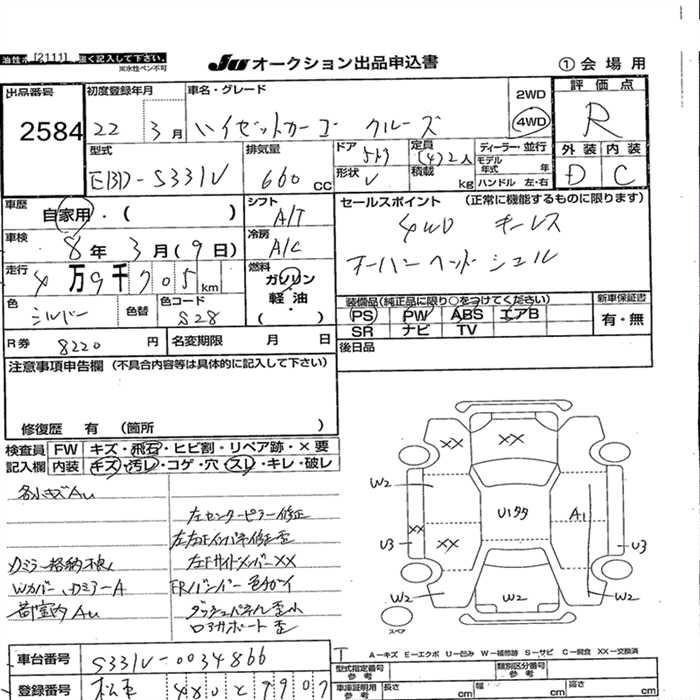 油性ボ [2111] 強く記入して下さい。
※水性ペン不可
JU オークション出品申込書
① 会場用
出品番号 2584
初度登録年月 22年 3月
車名・グレード ハイゼットカーゴ クルーズ
2WD
4WD
評価点 R
外装 内装
D C
型式 EBD-S331V
排気量 660 CC
ドア 5ドア
形状 V
定員 (4)2人
積載 kg
ディーラー・並行
モデル年式 年
ハンドル 左・右
車歴 自家用・( )
シフト A/T
セールスポイント (正常に機能するものに限ります)
4WD キーレス
オーバーヘッドシェル
車検 8年 3月(9日)
冷房 A/C
走行 4万9千705km
燃料 ガソリン
軽・油
( )
色 シルバー
色替
色コード S28
装備品(純正品に限り○をつけてください)
PS PW ABS エアB
SR ナビ TV
新車保証書
有・無
R券 8220円
名変期限 月 日
後日品
注意事項申告欄 (不具合内容等は具体的に記入して下さい)
修復歴 有 (箇所 )
検査員記入欄
FW キズ・飛石・ヒビ割・リペア跡・×要
内装 キズ・汚レ・コゲ・穴・スレ・キレ・破レ
各小キズAU
左センターピラー修正
左右Fインパネ修正歪
Dミラー格納不良
左FサイドメンバーXX
Wカバー、Dミラー A
FRバンパー色ガイ
荷室内AU
ダッシュパネル歪小
ロアサポート歪
XX XX
W2
U1タタ A1
XX XX
U3 U3
W2 W2 W2
スペア
車台番号 S331V-0034866
登録番号 松本 480 と 9907
T A-キズ E-エクボ U-凹み W-補修跡 S-サビ C-腐食 XX-交換済
型式指定番号 参考
類別区分番号 参考
車庫証明用 参考 長さ cm 幅 cm 高さ cm